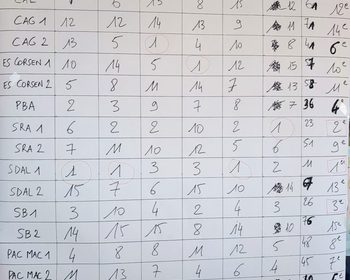 CAG 1 12 12 14 13 9 11 71 14e
CAG 2 13 5 1 4 10 8 41 6e
ES CORSEN 1 10 14 5 1 12 15 57 10e
ES CORSEN 2 5 8 11 14 7 13 58 11e
PBA 2 3 9 7 8 7 36 4e
SRA 1 6 2 2 10 2 1 23 2e
SRA 2 7 11 10 12 5 6 51 9e
SDAL 1 1 1 3 3 1 2 11 1e
SDAL 2 15 7 6 15 10 14 67 13e
SB 1 3 10 4 2 4 3 26 3e
SB 2 14 15 15 8 14 10 76 15e
PAC MAC 1 4 8 8 11 12 5 48 8e
PAC MAC 2 11 13 7 6 4 45 7e